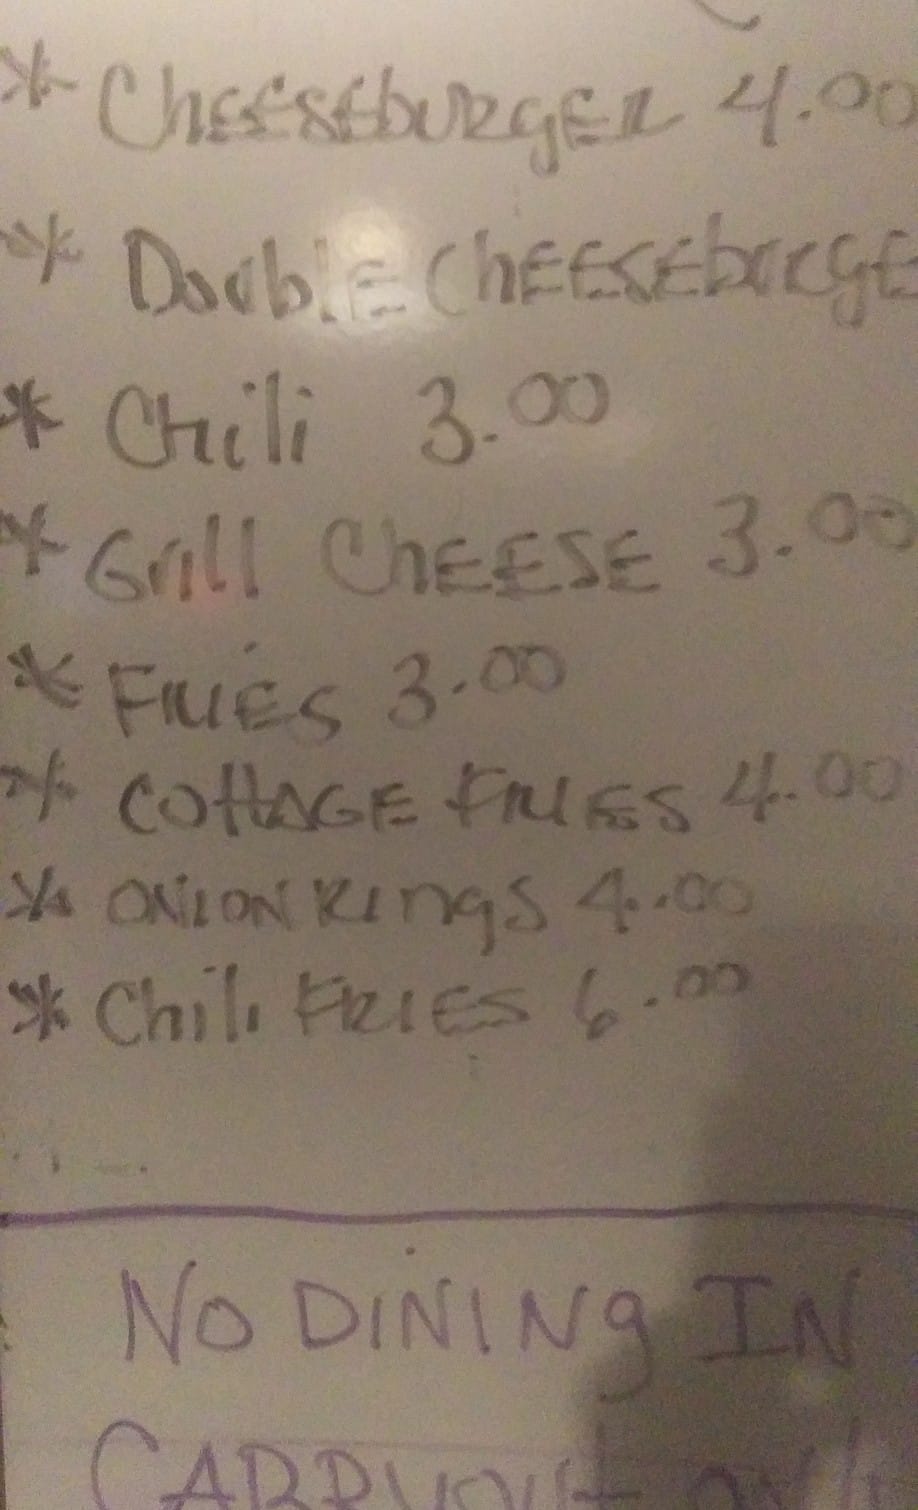 * CHEESEbURgER 4.00
* DoublE CHEESEburgE
* Chili 3.00
* Grill CHEESE 3.00
* FRIES 3.00
* COttAGE FRIES 4.00
* ONION RIngS 4.00
* Chili FRIES 6.00
No DININg IN
CARRYOUt ONLY